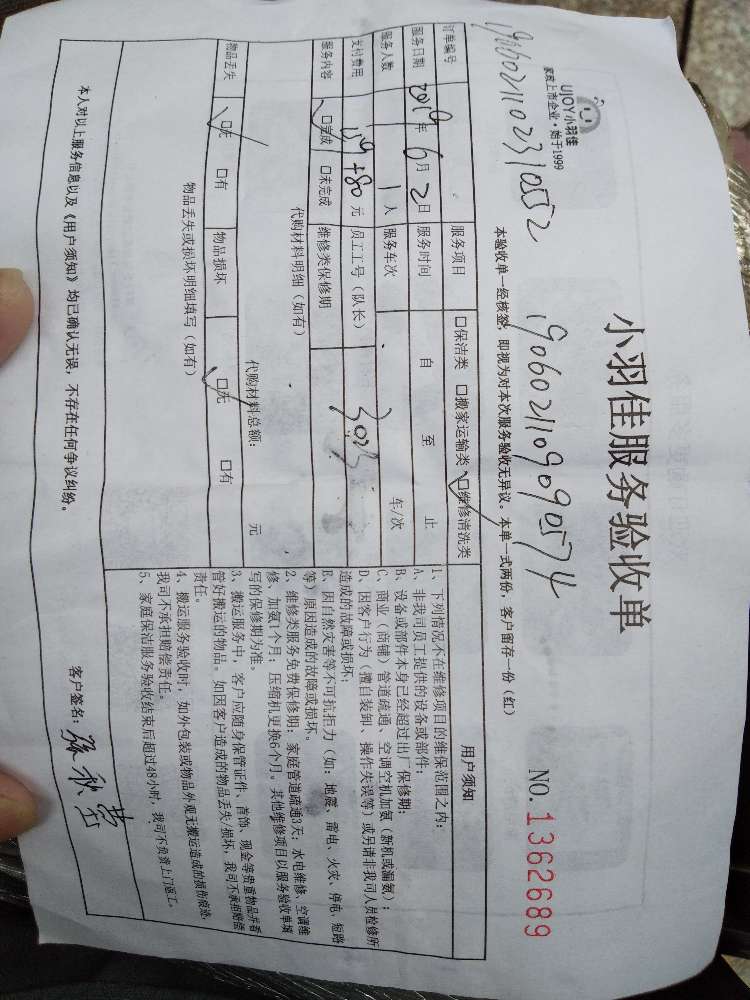 小羽佳服务验收单
UJOY小羽佳
家政上市企业·始于1999
NO.1362689
本验收单一经核签，即视为对本次服务验收无异议。本单一式两份，客户留存一份（红）
订单编号 1906021102310552 1906021109090574
服务项目 □保洁类 □搬家运输类 □维修清洗类
服务日期 2019年 6月 2日 服务时间 自 至 止
服务人数 1 人 服务车次 车/次
支付费用 119+80 元 员工工号（队长）
服务内容 □完成 □未完成 维修类保修期
代购材料明细（如有）
代购材料总额： 元
物品丢失 □无 □有 物品损坏 □无 □有
物品丢失或损坏明细填写（如有）
用户须知
1、下列情况不在维修项目的维保范围之内：
A、非我司员工提供的设备或部件；
B、设备或部件本身已经超过出厂保修期；
C、商业（商铺）管道疏通、空调空机加氨（新机或漏氨）；
D、因客户行为（擅自装卸、操作失误等）或另请非我司人员检修所
造成的故障或损坏；
E、因自然灾害等不可抗拒力（如：地震、雷电、火灾、停电、短路
等）原因造成的故障或损坏。
2、维修类服务免费保修期：家庭管道疏通3天；水电维修、空调维
修、加氨1个月；压缩机更换6个月。其他维修项目以服务验收单填
写的保修期为准。
3、搬运服务中，客户应随身保管证件、首饰、现金等贵重物品并看
管好搬运的物品。如因客户造成的物品丢失/损坏，我司不承担赔偿
责任。
4、搬运服务验收时，如外包装或物品外观无搬运造成的损伤痕迹，
我司不承担赔偿责任。
5、家庭保洁服务验收结束后超过48小时，我司不负责上门返工。
本人对以上服务信息以及《用户须知》均已确认无误，不存在任何争议纠纷。
客户签名：